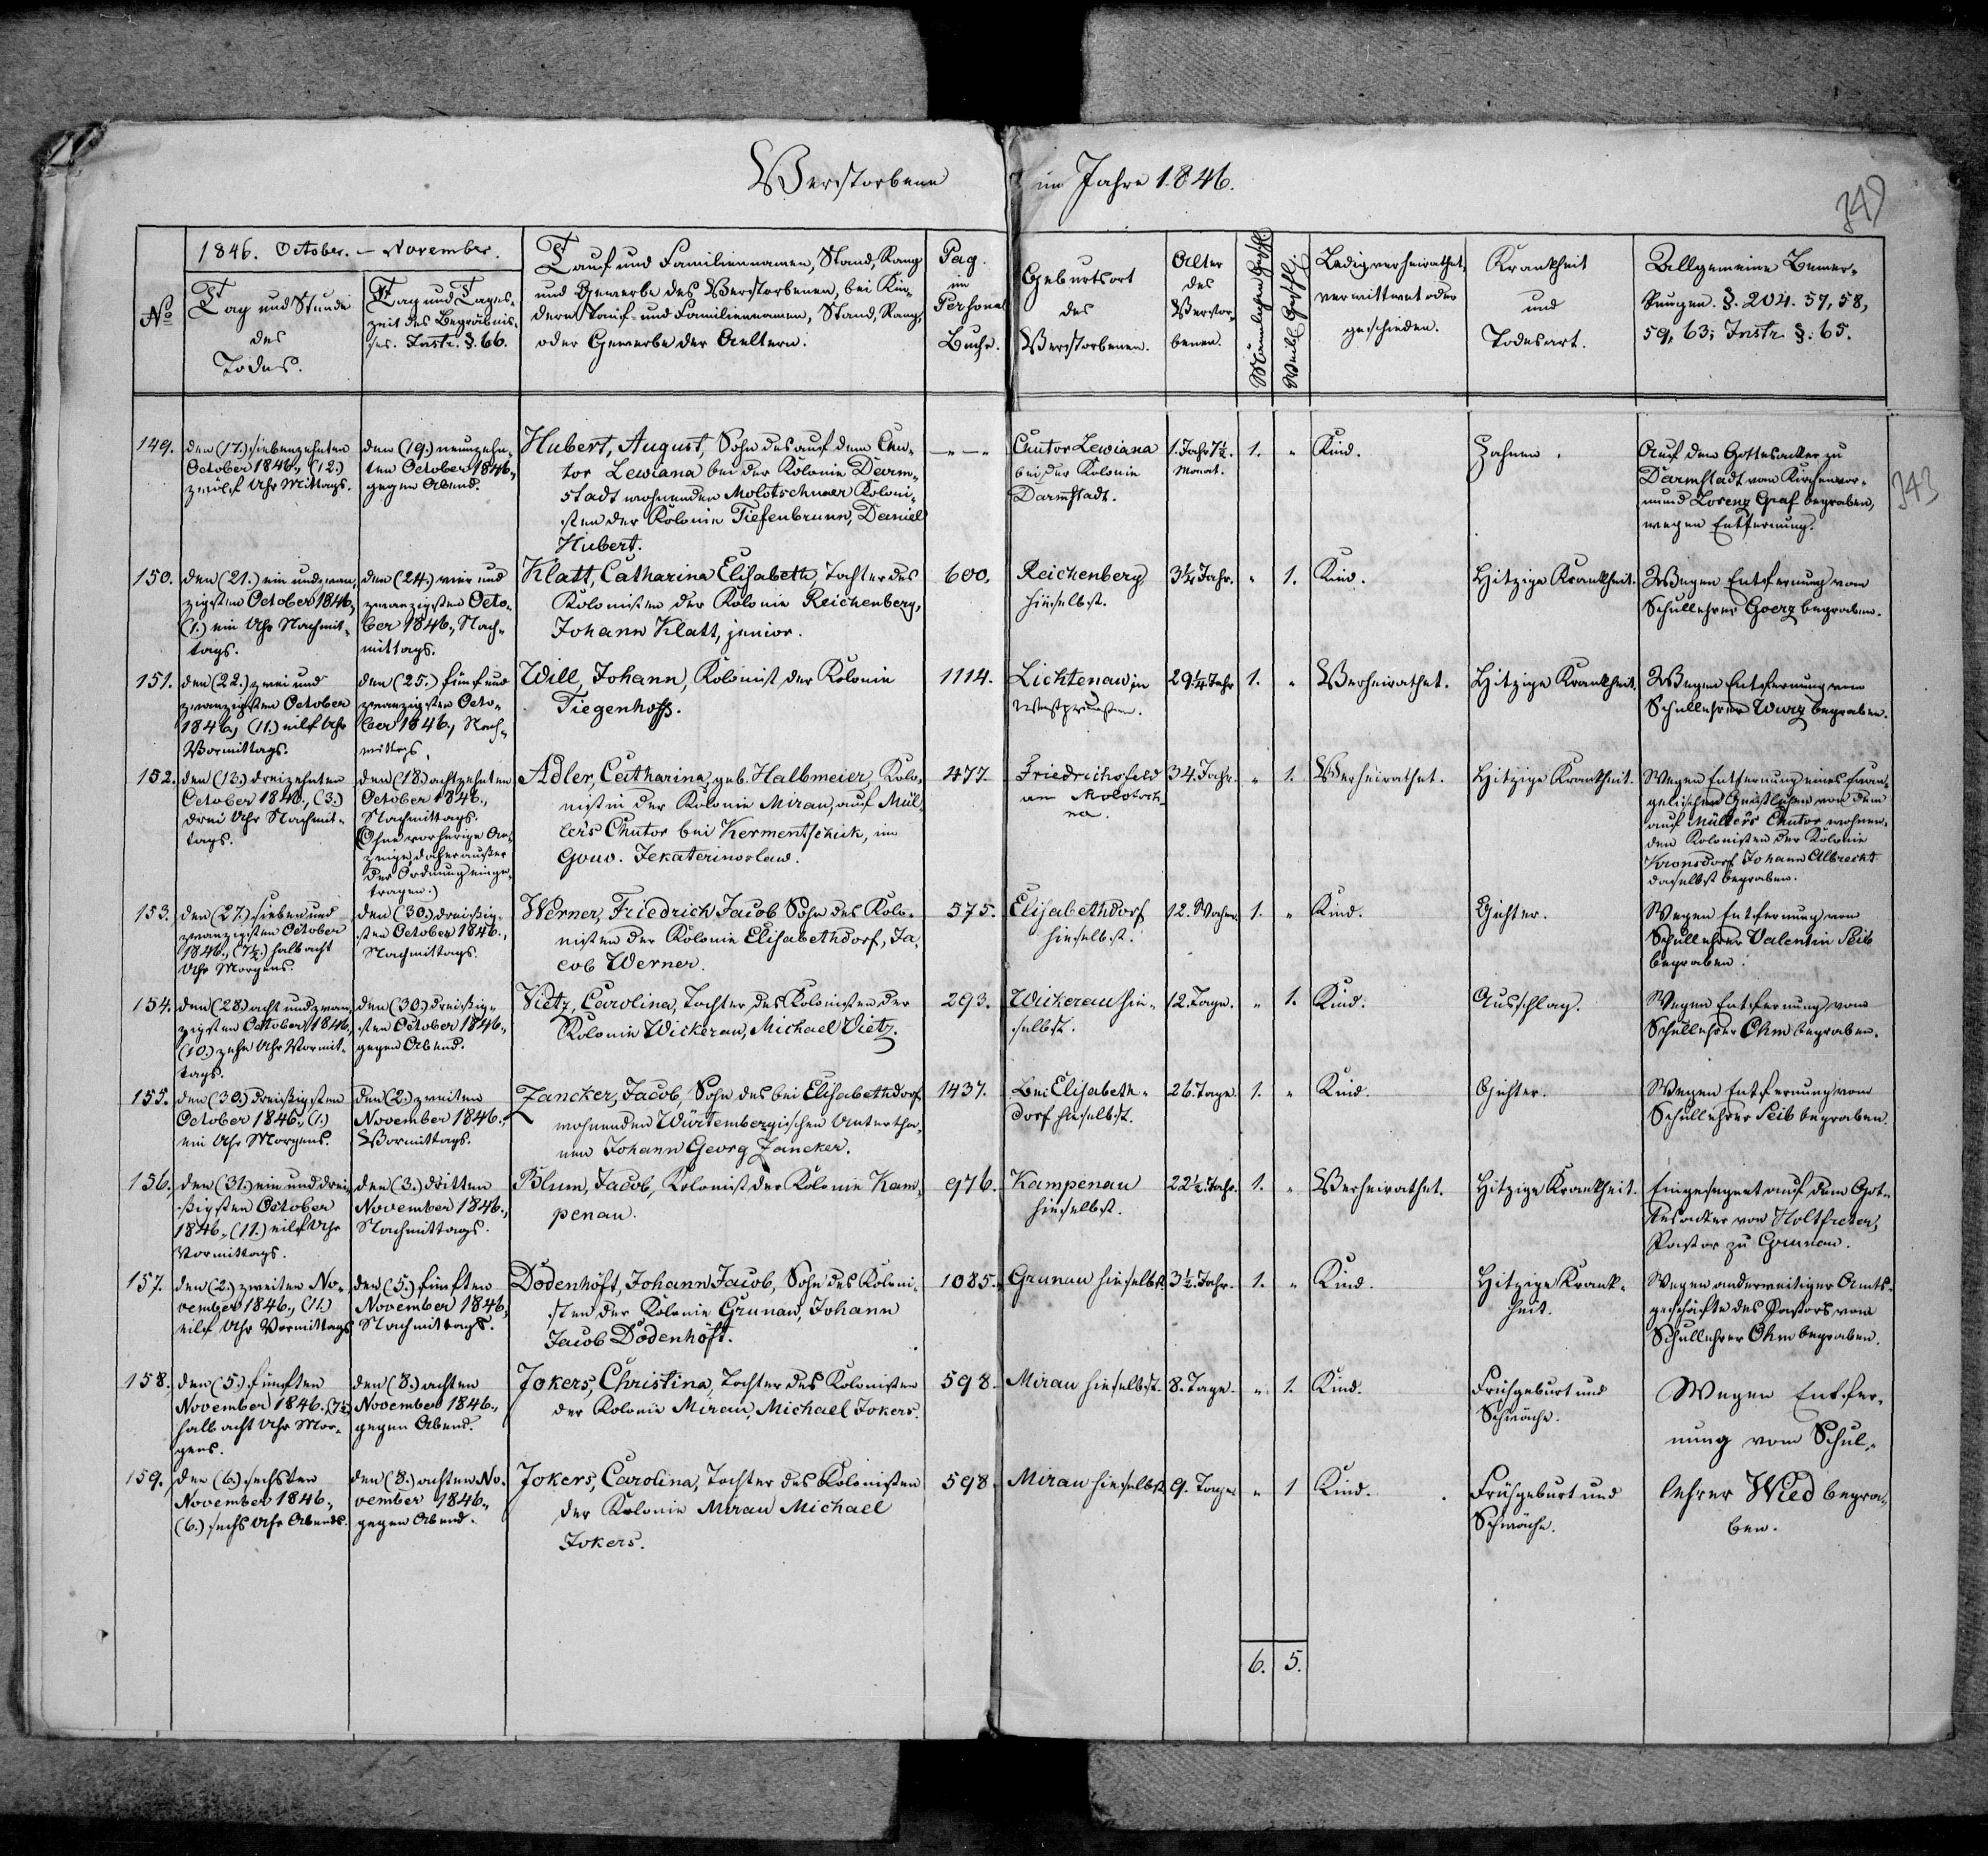 Verstorbene im Jahre 1846.
349
343
1846. October. – November.
No
Tag und Stunde
des
Todes.
Tag und Tages-
zeit des Begräbnis-
ses. Instr. §. 66.
Tauf und Familiennamen, Stand, Rang
und Gewerbe des Verstorbenen, bei Kin-
dern Tauf- und Familiennamen, Stand, Rang,
oder Gewerbe der Aeltern.
Pag.
im
Personal
Buche.
Geburtsort
des
Verstorbenen.
Alter
des
Verstor-
benen.
Männlichen Geschl.
Weibl. Geschl.
Ledig, verheirathet,
verwittwet oder
geschieden.
Krankheit
und
Todesart.
Allgemeine Bemer-
kungen. §. 204. 57, 58,
59, 63; Instr. §. 65.
149.
den (17.) siebenzehnten
October 1846., (12.)
zwölf Uhr Mittags.
den (19.) neunzehn-
ten October 1846.,
gegen Abend.
Hubert, August, Sohn des auf dem Chu-
tor Lewiana bei der Kolonie Darm-
stadt wohnenden Molotschnaer Koloni-
sten der Kolonie Tiefenbrunn, Daniel
Hubert.
„ — „
Chutor Lewiana
bei der Kolonie
Darmstadt.
1. Jahr 7½.
Monat.
1.
„
Kind.
Zahnen.
Auf dem Gottesacker zu
Darmstadt vom Kirchenvor-
mund Lorenz Graf begraben,
wegen Entfernung.
150.
den (21.) ein und zwan-
zigsten October 1846.,
(1.) ein Uhr Nachmit-
tags.
den (24.) vier und
zwanzigsten Octo-
ber 1846., Nach-
mittags.
Klatt, Catharina Elisabeth, Tochter des
Kolonisten der Kolonie Reichenberg,
Johann Klatt, junior.
600.
Reichenberg
hieselbst.
3¼ Jahr.
„
1.
Kind.
Hitzige Krankheit.
Wegen Entfernung vom
Schullehrer Goerz begraben.
151.
den (22.) zwei und
zwanzigsten October
1846., (11.) eilf Uhr
Vormittags.
den (25.) fünf und
zwanzigsten Octo-
ber 1846., Nach-
mittags.
Will, Johann, Kolonist der Kolonie
Tiegenhoff.
1114.
Lichtenau in
Westpreußen.
29¼ Jahr
1.
„
Verheirathet.
Hitzige Krankheit.
Wegen Entfernung vom
Schullehrer Wurz begraben.
152.
den (13.) dreizehnten
October 1846., (3.)
drei Uhr Nachmit-
tags.
den (18.) achtzehnten
October 1846.,
Nachmittags.
(Ohne vorherige An-
zeige, daher außer
der Ordnung einge-
tragen.)
Adler, Catharina, geb. Halbmeier, Kolo-
nistin der Kolonie Mirau, auf Mül-
lers Chutor bei Kermentschick, im
Gouv. Jekaterinoslaw.
477.
Friedrichsfeld
an Molotsch-
na.
34. Jahr.
„
1.
Verheirathet.
Hitzige Krankheit.
Wegen Entfernung eines Evan-
gelischen Geistlichen von dem
auf Müllers Chutor wohnen-
den Kolonisten der Kolonie
Kronsdorf Johann Albrecht
daselbst begraben.
153.
den (27.) sieben und
zwanzigsten October
1846., (7½.) halb acht
Uhr Morgens.
den (30.) dreißig-
sten October 1846.,
Nachmittags.
Werner, Friedrich Jacob Sohn des Kolo-
nisten der Kolonie Elisabethdorf, Ja-
cob Werner.
575.
Elisabethdorf
hieselbst.
12. Wochen.
1.
„
Kind.
Gichter.
Wegen Entfernung vom
Schullehrer Valentin Seib
begraben.
154.
den (28.) acht und zwan-
zigsten October 1846.,
(10.) zehn Uhr Vormit-
tags.
den (30.) dreißig-
sten October 1846.,
gegen Abend.
Vietz, Carolina, Tochter des Kolonisten der
Kolonie Wickerau, Michael Vietz.
293.
Wickerau hie-
selbst.
12. Tage.
„
1.
Kind.
Ausschlag.
Wegen Entfernung vom
Schullehrer Ohm begraben.
155.
den (30.) dreißigsten
October 1846., (1.)
ein Uhr Morgens.
den (2.) zweiten
November 1846.,
Vormittags.
Zancker, Jacob, Sohn des bei Elisabethdorf
wohnenden Würtembergischen Untertha-
nen Johann Georg Zancker.
1437.
Bei Elisabeth-
dorf hieselbst.
26. Tage.
1.
„
Kind.
Gichter.
Wegen Entfernung vom
Schullehrer Seib begraben.
156.
den (31.) ein und drei-
ßigsten October
1846., (11.) eilf Uhr
Vormittags.
den (3.) dritten
November 1846.,
Nachmittags.
Blum, Jacob, Kolonist der Kolonie Kam-
penau.
976.
Kampenau
hieselbst.
22½. Jahr.
1.
„
Verheirathet.
Hitzige Krankheit.
Eingesegnet auf dem Got-
tesacker von Holtfreter,
Pastor zu Grunau.
157.
den (2.) zweiten No-
vember 1846., (11.)
eilf Uhr Vormittags
den (5.) fünften
November 1846.,
Nachmittags.
Dodenhöft, Johann Jacob, Sohn des Koloni-
sten der Kolonie Grunau, Johann
Jacob Dodenhöft.
1085.
Grunau hieselbst.
3½. Jahr.
1.
„
Kind.
Hitzige Krank-
heit.
Wegen anderweitiger Amts-
geschäfte des Pastors vom
Schullehrer Ohm begraben.
158.
den (5.) fünften
November 1846. (7½.)
halb acht Uhr Mor-
gens.
den (8.) achten
November 1846.,
gegen Abend.
Jokers, Christina, Tochter des Kolonisten
der Kolonie Mirau, Michael Jokers.
598.
Mirau hieselbst.
8. Tage.
„
1.
Kind.
Frühgeburt und
Schwäche.
Wegen Entfer-
nung vom Schul-
159.
den (6.) sechsten
November 1846.,
(6.) sechs Uhr Abends.
den (8.) achten No-
vember 1846.,
gegen Abend.
Jokers, Carolina, Tochter des Kolonisten
der Kolonie Mirau Michael
Jokers.
598.
Mirau hieselbst
9. Tage
„
1
Kind.
Frühgeburt und
Schwäche.
lehrer Wied begra-
ben.
6.
5.